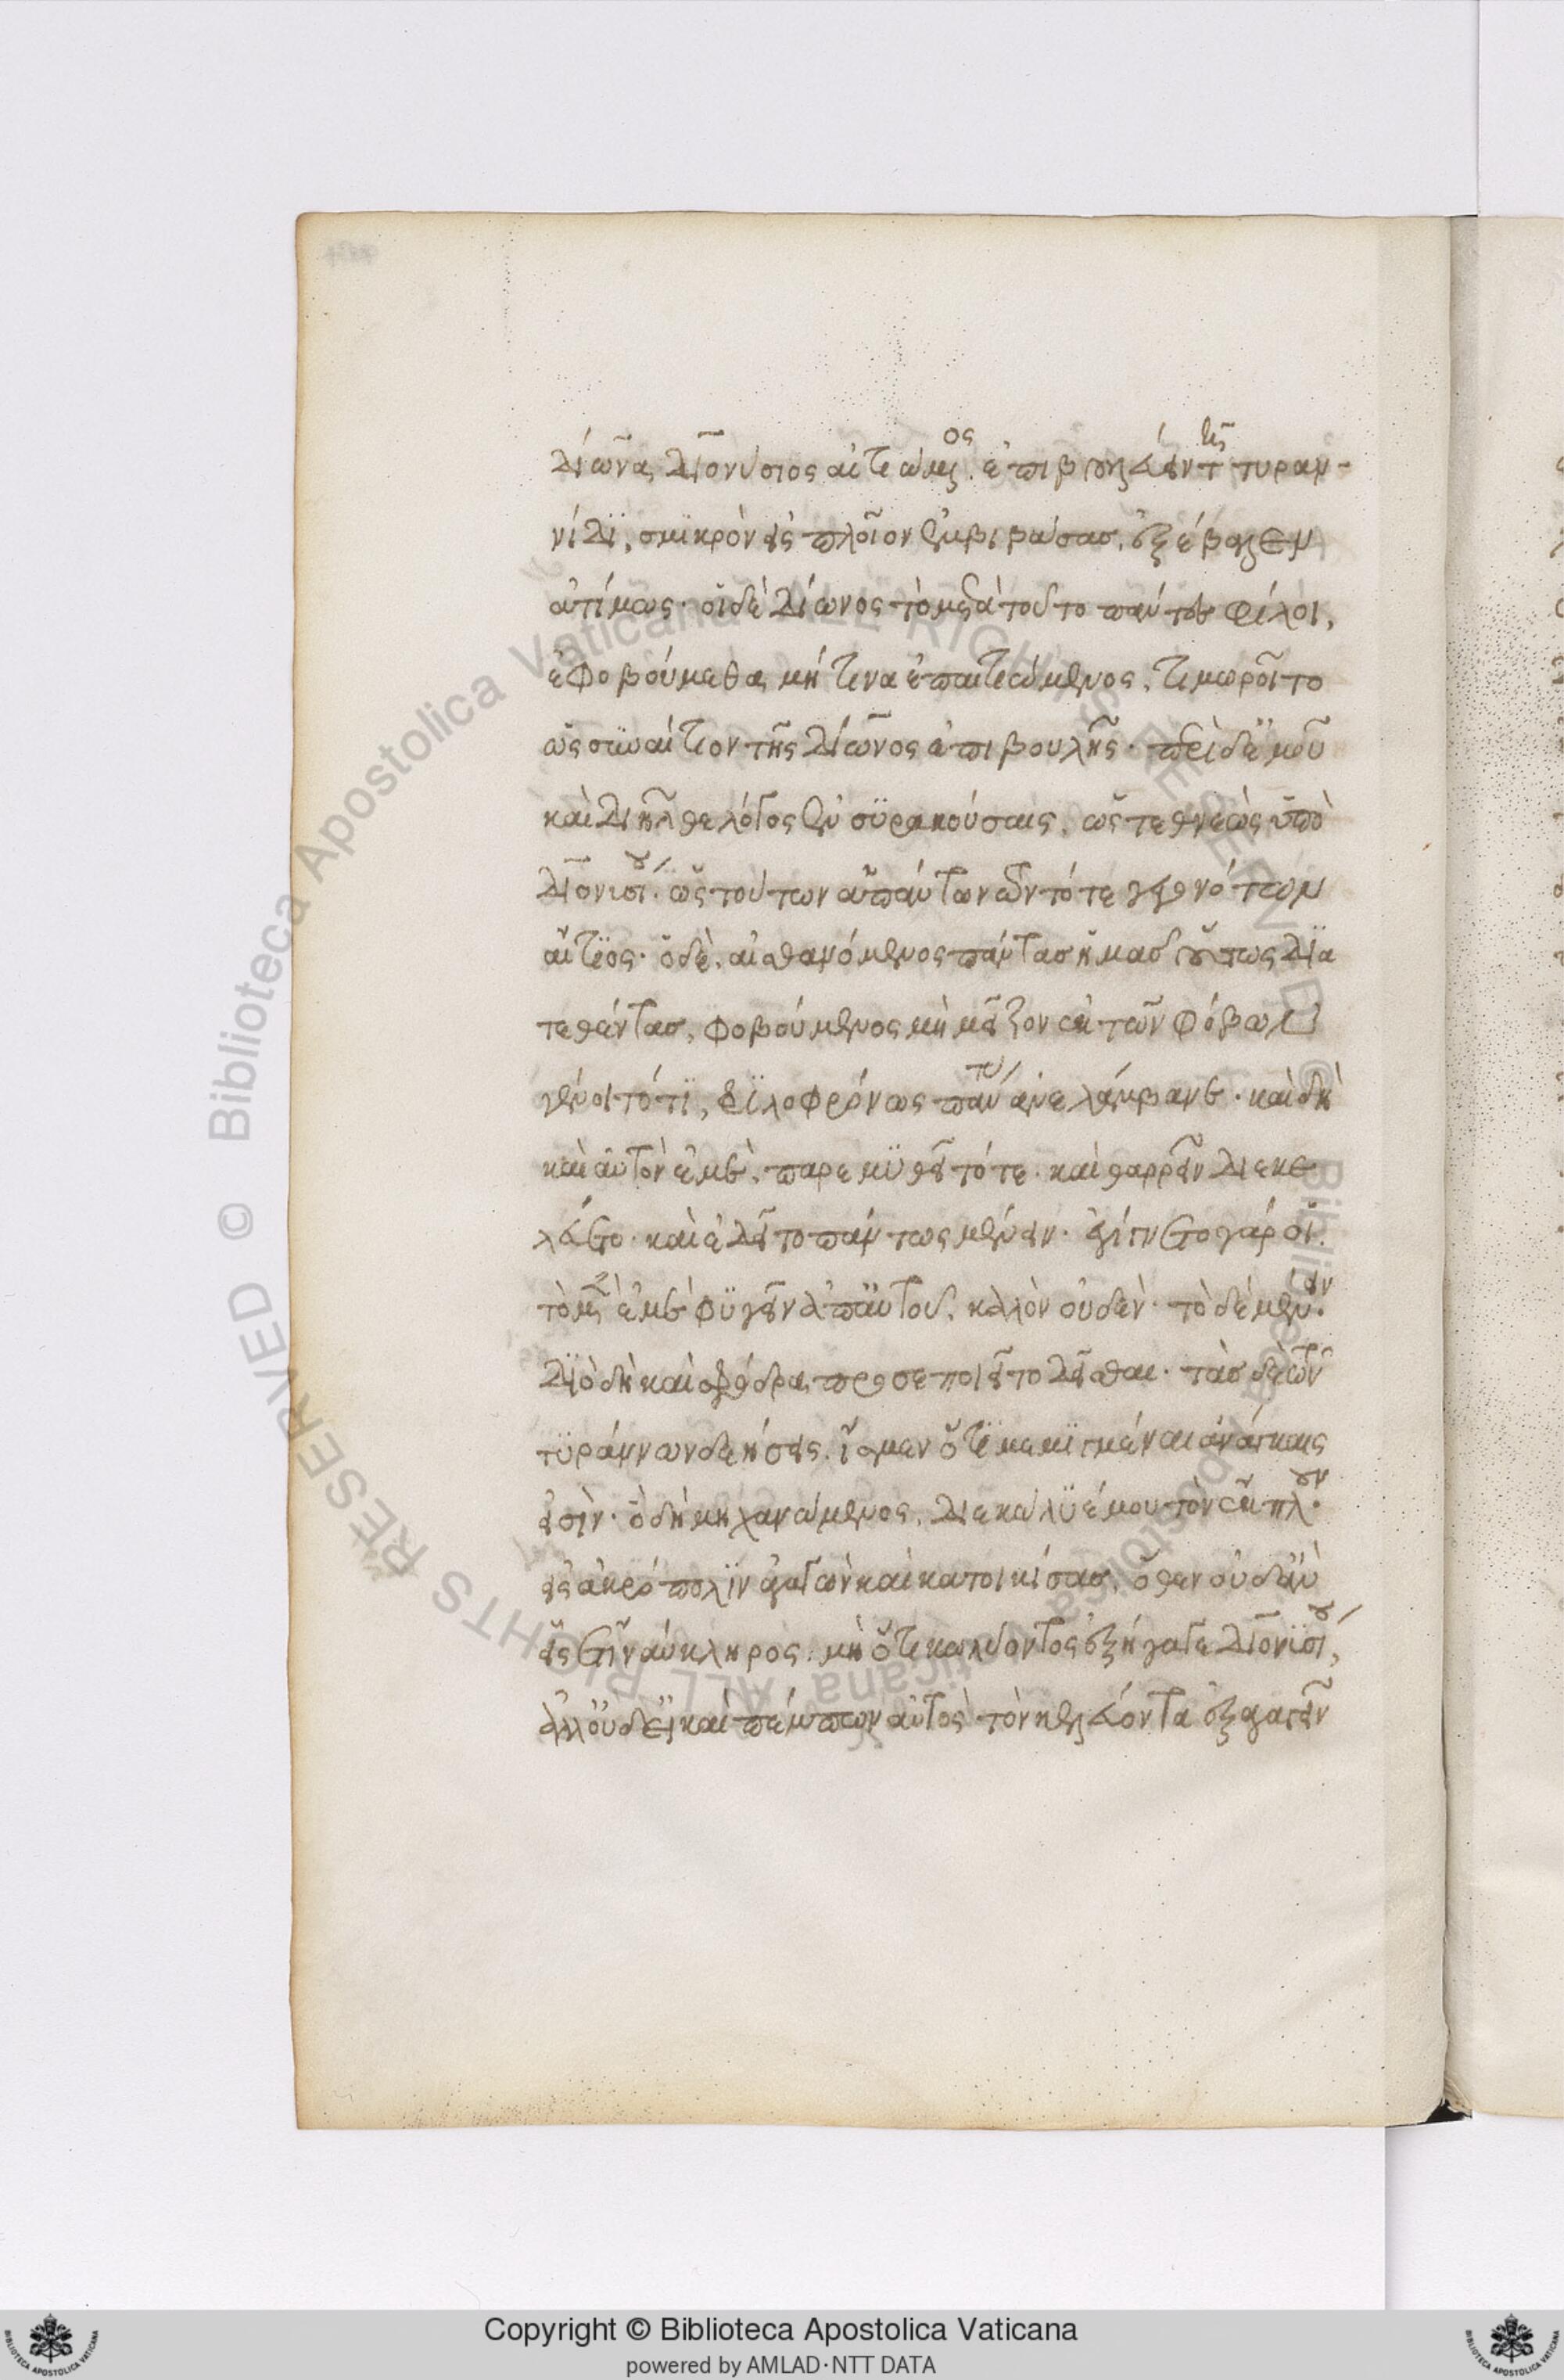 Δίωνα Διονύσιος αἰτιώμενος ἐπιβουλεύειν τῆ τυραν-
νίδι, σμικρὸν εἰς πλοῖον ἐμβιβάσας, ἐξέβαλεν
ἀτίμως· οἱ δὲ Δίωνος τὸ μετὰ τοῦτο πάντες φίλοι,
ἐφοβούμεθα μή τινα ἐπαιτιώμενος, τιμωροῖτο
ὡς συναίτιον τῆς Δίωνος ἐπιβουλῆς· περὶ δ' ἐμοῦ
καὶ διῆλθε λόγος ἐν συρακούσαις, ὡς τεθνεὼς ὑπὸ
Διονυσίου. ὡς τούτων ἁπάντων ὧν τότε γεγονότων
αἴτιος· ὁ δὲ, αἰσθανόμενος πάντας ἡμᾶς οὕτως δια
τεθέντας, φοβούμενος μὴ μεῖζον ἐκ τῶν φόβων
γένοιτό τι, φιλοφρόνως πάντας ἀνελάμβανε· καὶ δὴ
καὶ αὐτὸν ἐμὲ, παρεμυθεῖτό τε· καὶ θαρρεῖν διεκε
λεύετο· καὶ ἐδεῖτο πάντως μένειν· ἐγίγνετο γάρ οἱ.
τὸ μὲν ἐμὲ φυγεῖν ἀπ' αὐτοῦ, καλὸν οὐδὲν· τὸ δὲ μένειν.
Διὸ δὴ καὶ σφόδρα προσεποιεῖτο δεῖσθαι· τὰς δὲ τῶν
τυράννων δεήσεις, ἴσμεν ὅτι μεμιγμέναι ἀνάγκαις
εἰσίν· ὁ δὴ μηχανώμενος, διεκώλυέ μου τὸν ἔκπλουν.
εἰς ἀκρόπολιν ἀγαγὼν καὶ κατοικίσας, ὅθεν οὐδ' ἂν
εἷς ἔτι ναύκληρος. μὴ ὅτι κωλύοντος ἐξήγαγε Διονυσίου,
ἀλλ' οὐδ' εἰ καὶ πέμπων αὐτὸς τὸν κελεύοντα ἐξαγαγεῖν